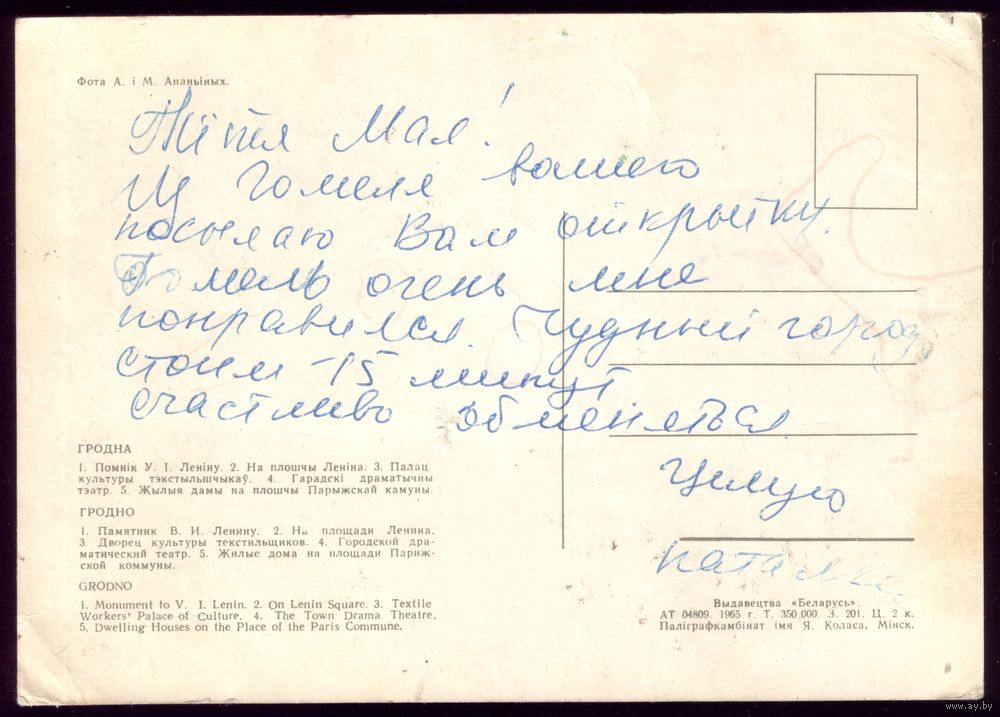 Фота А. і М. Ананьіных.
Тётя Мая!
Из Гомеля вашего
посылаю Вам открытку.
Гомель очень мне
понравился. Чудный город
стоим 15 минут
счастливо обменяться
Целую
Наталка
ГРОДНА
1. Помнік У. І. Леніну. 2. На плошчы Леніна. 3. Палац
культуры тэкстыльшчыкаў. 4. Гарадскі драматычны
тэатр. 5. Жылыя дамы на плошчы Парыжскай камуны.
ГРОДНО
1. Памятник В. И. Ленину. 2. На площади Ленина.
3. Дворец культуры текстильщиков. 4. Городской дра-
матический театр. 5. Жилые дома на площади Париж-
ской коммуны.
GRODNO
1. Monument to V. I. Lenin. 2. On Lenin Square. 3. Textile
Workers' Palace of Culture. 4. The Town Drama Theatre,
5. Dwelling Houses on the Place of the Paris Commune.
Выдавецтва «Беларусь».
АТ 04809. 1965 г. Т. 350.000. З. 201. Ц. 2 к.
Паліграфкамбінат імя Я. Коласа, Мінск.
www.ay.by